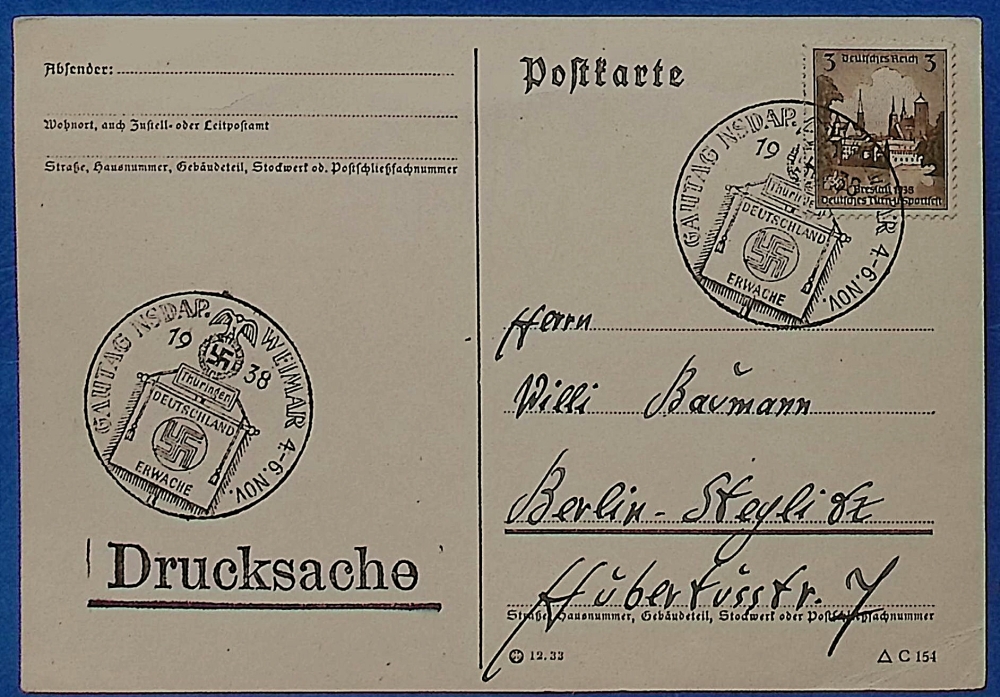 Absender:
Wohnort, auch Zustell- oder Leitpostamt
Straße, Hausnummer, Gebäudeteil, Stockwerk od. Postschließfachnummer
GAUTAG NSDAP. WEIMAR 4.-6. NOV.
19 38
Thüringen
DEUTSCHLAND
ERWACHE
Drucksache
Postkarte
3 Deutsches Reich 3
Breslau 1938
Deutsches Turn-u. Sportfest
GAUTAG NSDAP. WEIMAR 4.-6. NOV.
19 38
Thüringen
DEUTSCHLAND
ERWACHE
Herrn
Willi Baumann
Berlin-Steglitz
Hubertusstr. 7
Straße, Hausnummer, Gebäudeteil, Stockwerk oder Postschließfachnummer
12.33
C 154